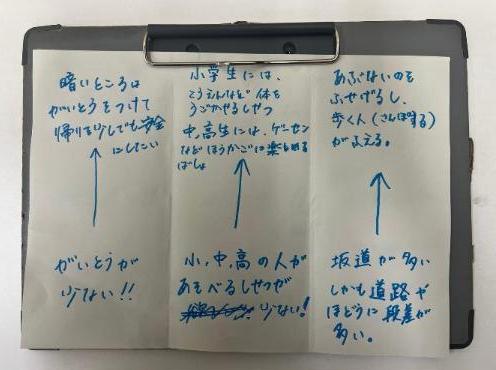 暗いところは
がいとうをつけて
帰りを少しでも安全
にしたい
がいとうが
少ない!!
小学生には、
こうえんなど体を
うごかせるしせつ
中高生には、ゲーセン
などほうかごに楽しめる
ばしょ
小、中、高の人が
あそべるしせつが
少ない!
あぶないのを
ふせげるし、
歩く人(さんぽする)
がふえる。
坂道が多い
しかも道路や
ほどうに段差が
多い。